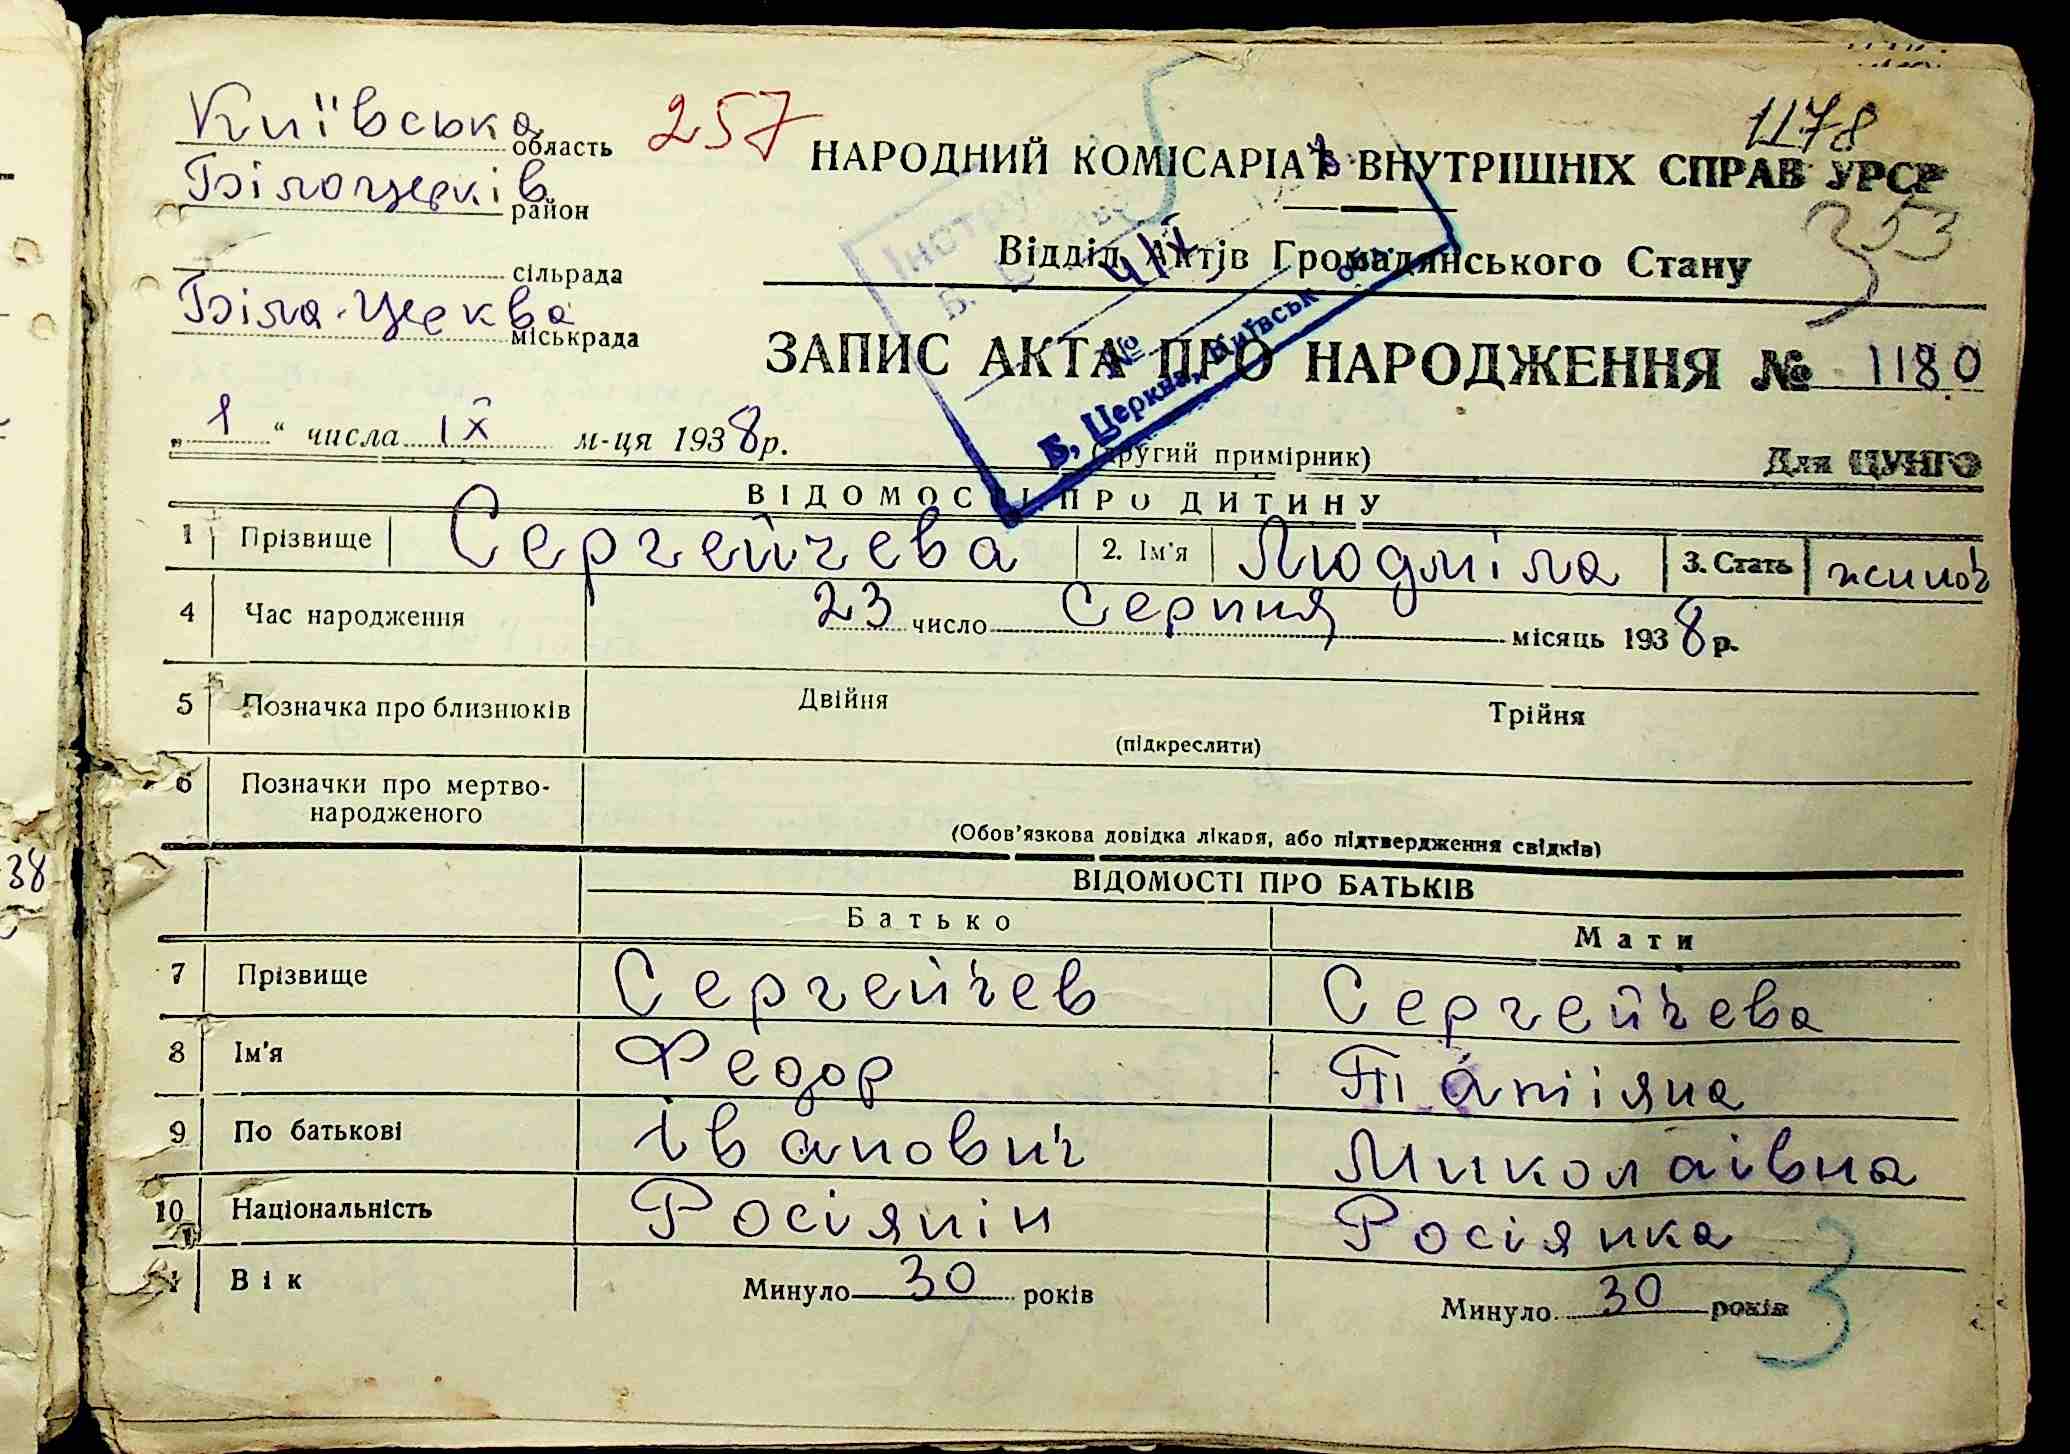 Київська область 257
1178
НАРОДНИЙ КОМІСАРІАТ ВНУТРІШНІХ СПРАВ УРСР
Білоцерків район
353
Відділ Актів Громадянського Стану
сільрада
Біла-Церква міськрада
ЗАПИС АКТА ПРО НАРОДЖЕННЯ № 1180
№
Б. Церква, Київськ обл.
„ 1 “ числа IX м-ця 1938 р.
(другий примірник)
Для ЦУНГО
ВІДОМОСТІ ПРО ДИТИНУ
1 Прізвище Сергейчева 2. Ім'я Людміла 3. Стать жиноч
4 Час народження 23 число Серпня місяць 1938 р.
5 Позначка про близнюків Двійня Трійня
(підкреслити)
6 Позначки про мертво-
народженого
(Обов'язкова довідка лікаря, або підтвердження свідків)
38
ВІДОМОСТІ ПРО БАТЬКІВ
Батько Мати
7 Прізвище Сергейчев Сергейчева
8 Ім'я Федор Татіяна
9 По батькові Іванович Миколаівна
10 Національність Росіянін Росіянка
Вік Минуло 30 років Минуло 30 років
3